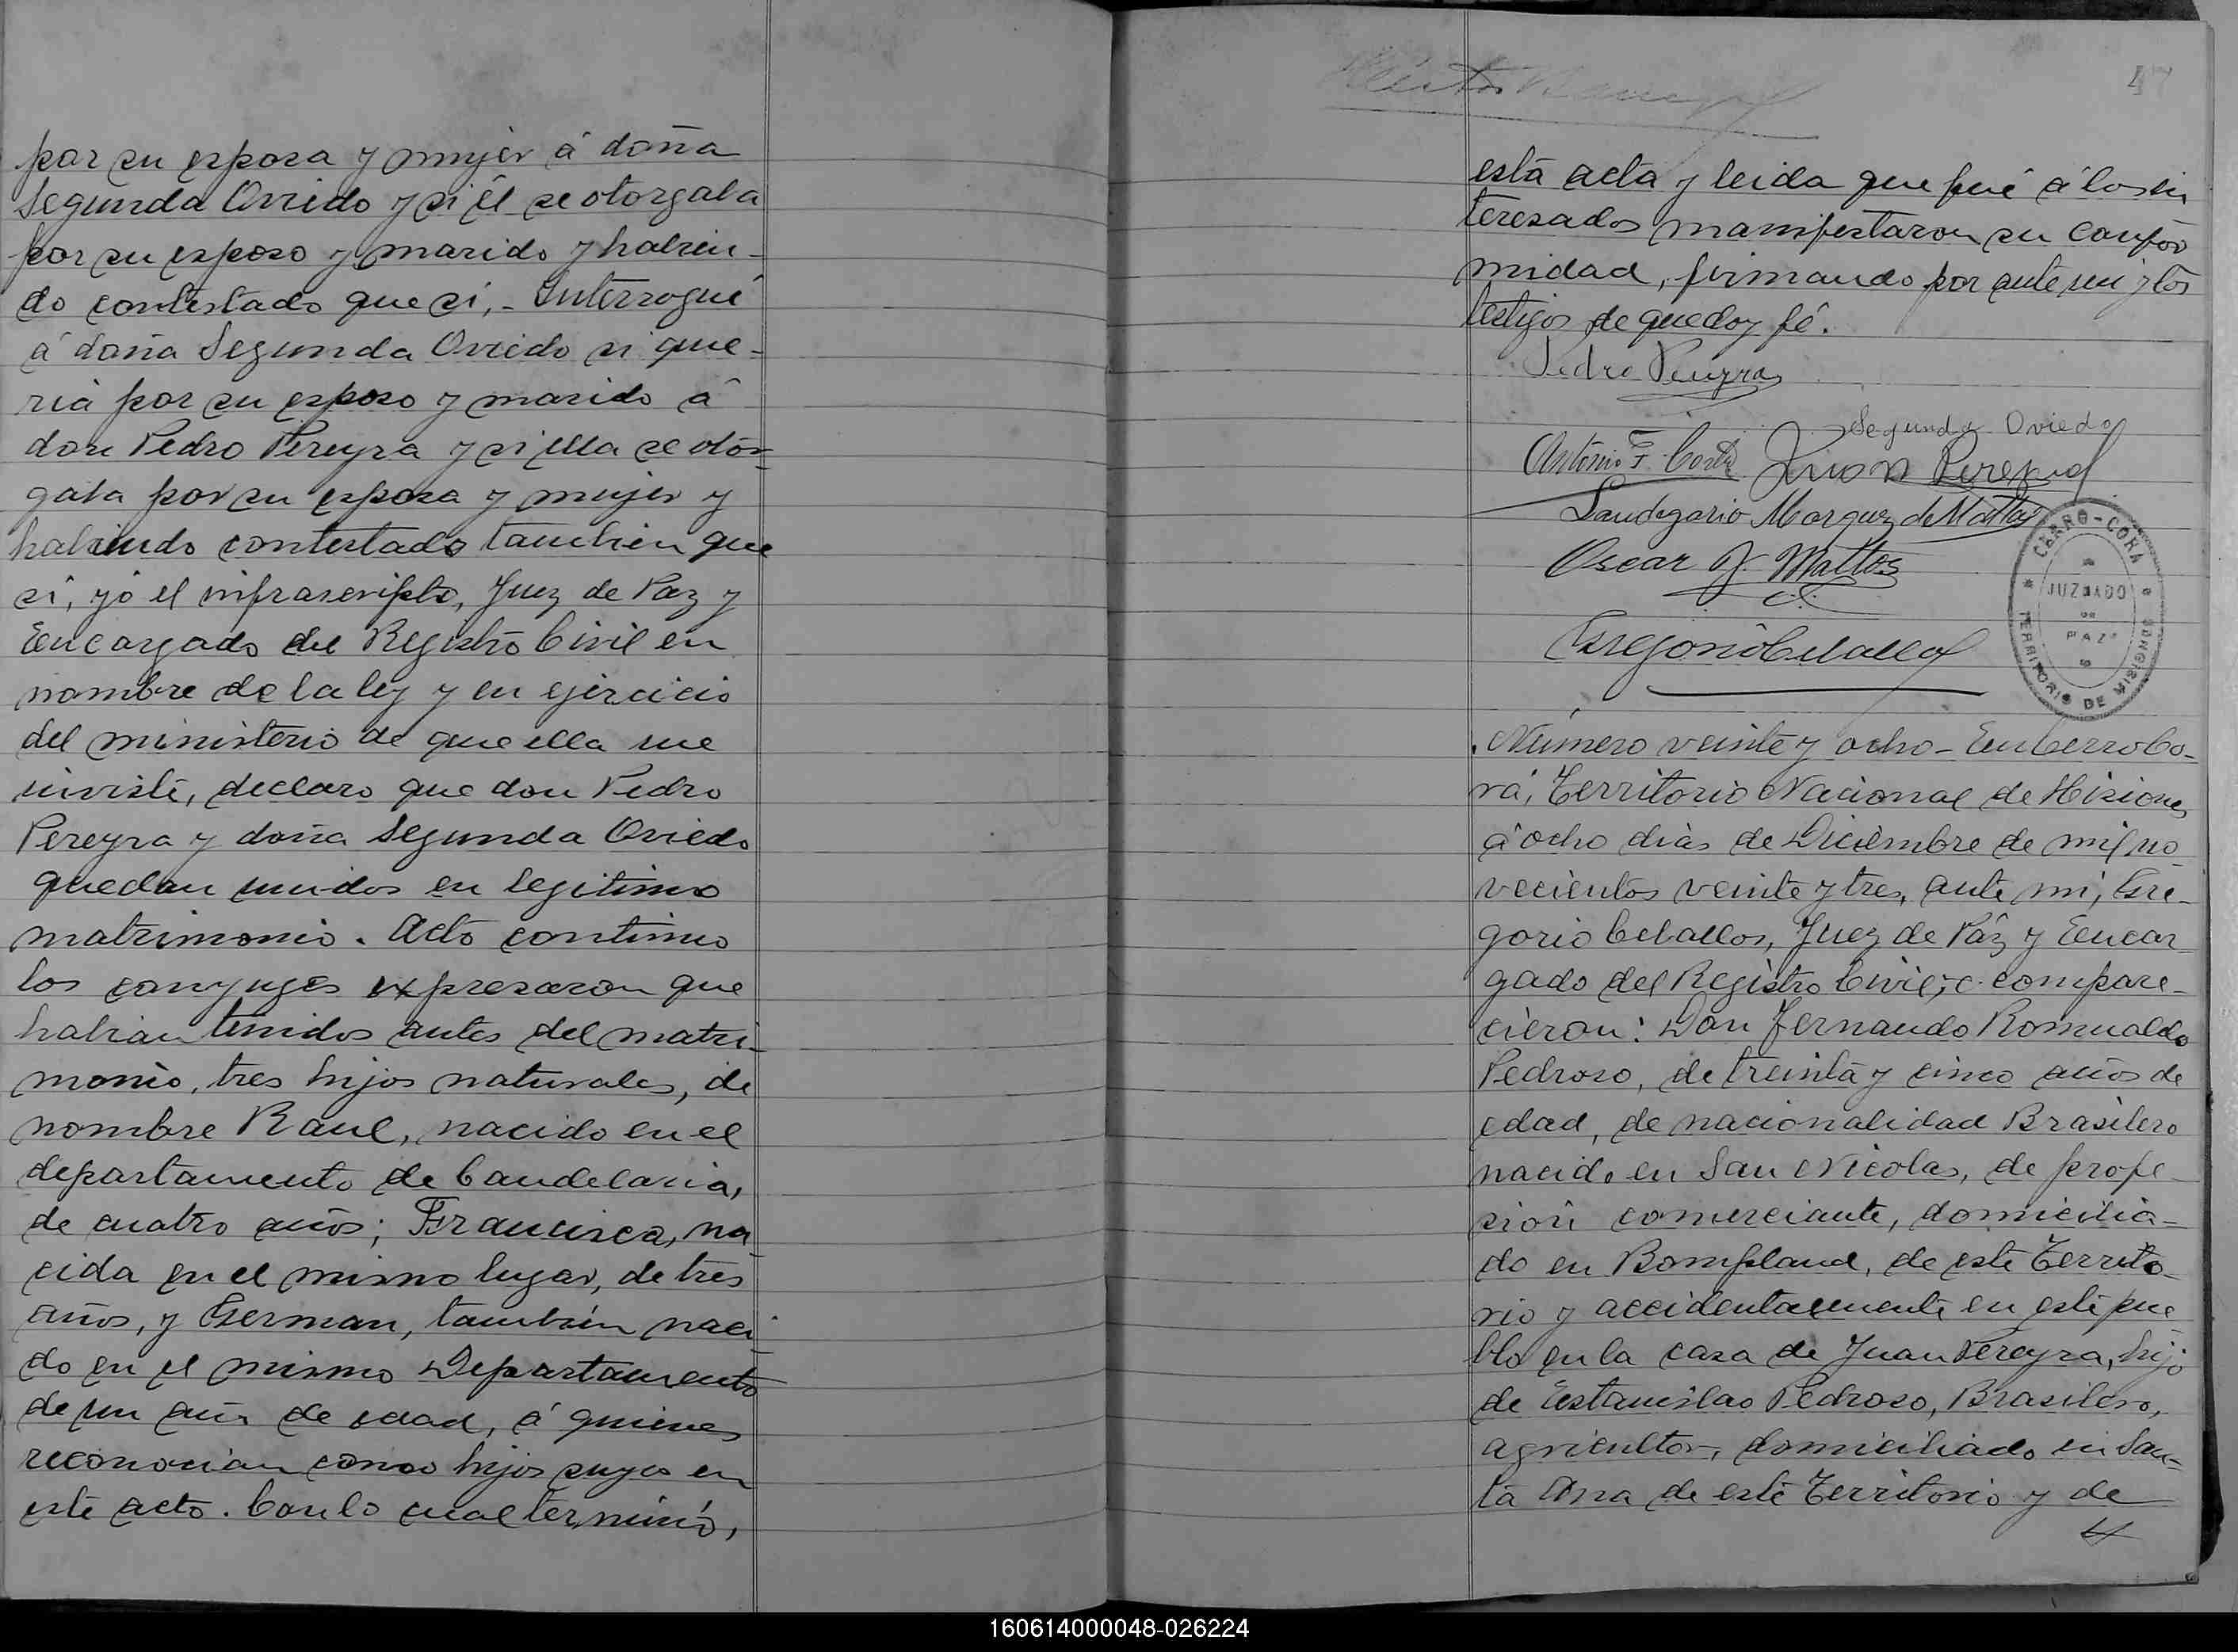 por su esposa y mujer á doña
Segunda Oviedo y si él se otorgaba
por su esposo y marido y habien-
do contestado que si, - Interrogué
á doña Segunda Oviedo si que-
ria por su esposo y marido á
don Pedro Pereyra y si ella se otor-
gaba por su esposa y mujer y
habiendo contestado tambien que
si, yó el infrascripto, Juez de Paz y
Encargado del Registro Civil en
nombre de la ley y en ejercicio
del ministerio de que ella me
inviste, declaro que don Pedro
Pereyra y doña Segunda Oviedo
quedan unidos en legitimo
matrimonio. Acto continuo
los conyuges expresaron que
habian tenidos antes del matri-
monio, tres hijos naturales, de
nombre Raul, nacido en el
departamento de Candelaria,
de cuatro años; Francisca, na-
cida en el mismo lugar, de tres
años, y German, también naci-
do en el mismo Departamento
de un año de edad, á quienes
reconocian como hijos suyos en
este acto. Con lo cual terminó,
47
está acta y leida que fué á los in
teresados manifestaron su confor
midad, firmando por ante mi y los
testigos de que doy fé.
Pedro Pereyra
Segunda Oviedo
Antonio F. Juan Pereyra
Laudegario Marquez de Mattos
Oscar J. Mattos
Gregorio Ceballos
CERRO-CORA
JUZGADO
DE
PAZ
TERRITORIO DE MISIONES
Número veinte y ocho - En Cerro Co-
rá, Territorio Nacional de Misiones
á ocho dias de Diciembre de mil no-
vecientos veinte y tres, ante mi, Gre-
gorio Ceballos, Juez de Páz y Encar-
gado del Registro Civil, compare-
cieron: Don Fernando Romualdo
Pedroso, de treinta y cinco años de
edad, de nacionalidad Brasilero
nacido en San Nicolas, de profe-
sión comerciante, domicilia-
do en Bompland, de este Territo-
rio y accidentalmente en este pue
blo en la casa de Juan Pereyra, hijo
de Estanislao Pedroso, Brasilero,
agricultor, domiciliado en San-
ta Ana de este Territorio y de
160614000048-026224